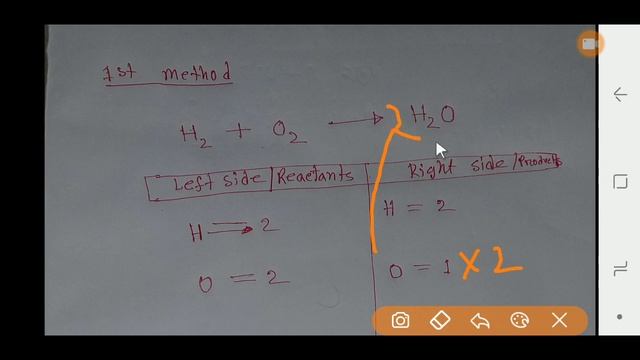 1st method
H₂ + O₂ → 2 H₂O
Left side/Reactants Right side/Products
H → 2 H = 2
O = 2 O = 1 × 2